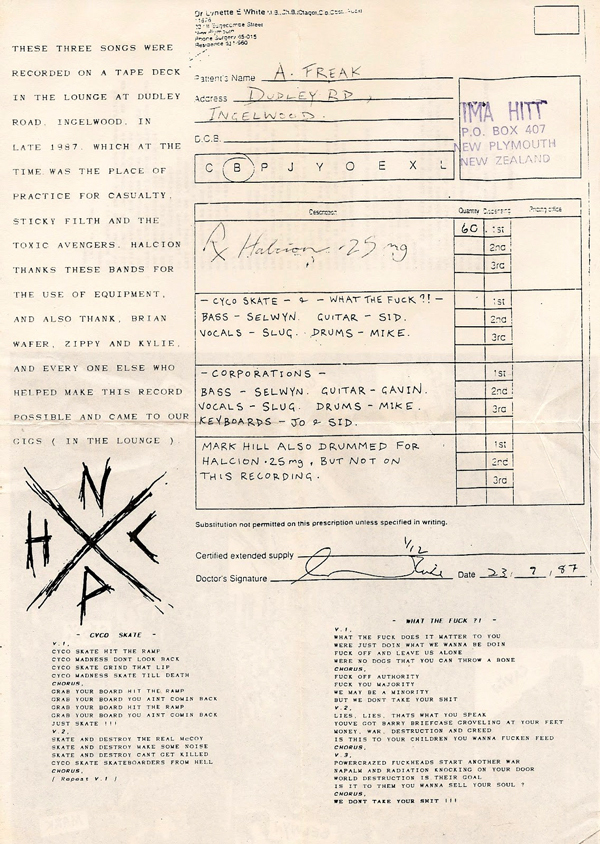 THESE THREE SONGS WERE
RECORDED ON A TAPE DECK
IN THE LOUNGE AT DUDLEY
ROAD, INGELWOOD, IN
LATE 1987. WHICH AT THE
TIME WAS THE PLACE OF
PRACTICE FOR CASUALTY,
STICKY FILTH AND THE
TOXIC AVENGERS. HALCION
THANKS THESE BANDS FOR
THE USE OF EQUIPMENT,
AND ALSO THANK, BRIAN
WAFER, ZIPPY AND KYLIE,
AND EVERY ONE ELSE WHO
HELPED MAKE THIS RECORD
POSSIBLE AND CAME TO OUR
GIGS ( IN THE LOUNGE ).
N
H C
P
Dr Lynette E White
Street
New Plymouth
Phone Surgery 85-015
Residence
Patient's Name A. FREAK
Address DUDLEY RD,
INGELWOOD.
D.C.B.
C B P J Y O E X L
IMA HITT
P.O. BOX 407
NEW PLYMOUTH
NEW ZEALAND
Description Quantity Dispensing Pricing office
Rx Halcion .25 mg 60 1st
2nd
3rd
- CYCO SKATE - & - WHAT THE FUCK ?! - 1st
BASS - SELWYN. GUITAR - SID. 2nd
VOCALS - SLUG. DRUMS - MIKE. 3rd
- CORPORATIONS - 1st
BASS - SELWYN. GUITAR - GAVIN. 2nd
VOCALS - SLUG. DRUMS - MIKE. 3rd
KEYBOARDS - JO & SID.
MARK HILL ALSO DRUMMED FOR 1st
HALCION .25mg, BUT NOT ON 2nd
THIS RECORDING. 3rd
Substitution not permitted on this prescription unless specified in writing.
Certified extended supply 1/12
Doctor's Signature Date 23 / 9 / 87
- CYCO SKATE -
V.1,
CYCO SKATE HIT THE RAMP
CYCO MADNESS DONT LOOK BACK
CYCO SKATE GRIND THAT LIP
CYCO MADNESS SKATE TILL DEATH
CHORUS,
GRAB YOUR BOARD HIT THE RAMP
GRAB YOUR BOARD YOU AINT COMIN BACK
GRAB YOUR BOARD HIT THE RAMP
GRAB YOUR BOARD YOU AINT COMIN BACK
JUST SKATE !!!
V.2,
SKATE AND DESTROY THE REAL McCOY
SKATE AND DESTROY MAKE SOME NOISE
SKATE AND DESTROY CANT GET KILLED
CYCO SKATE SKATEBOARDERS FROM HELL
CHORUS,
( Repeat V.1 )
- WHAT THE FUCK ?! -
V.1,
WHAT THE FUCK DOES IT MATTER TO YOU
WERE JUST DOIN WHAT WE WANNA BE DOIN
FUCK OFF AND LEAVE US ALONE
WERE NO DOGS THAT YOU CAN THROW A BONE
CHORUS,
FUCK OFF AUTHORITY
FUCK YOU MAJORITY
WE MAY BE A MINORITY
BUT WE DONT TAKE YOUR SHIT
V.2,
LIES, LIES, THATS WHAT YOU SPEAK
YOUVE GOT BARRY BRIEFCASE GROVELING AT YOUR FEET
MONEY, WAR, DESTRUCTION AND GREED
IS THIS TO YOUR CHILDREN YOU WANNA FUCKEN FEED
CHORUS,
V.3,
POWERCRAZED FUCKHEADS START ANOTHER WAR
NAPALM AND RADIATION KNOCKING ON YOUR DOOR
WORLD DESTRUCTION IS THEIR GOAL
IS IT TO THEM YOU WANNA SELL YOUR SOUL ?
CHORUS,
WE DONT TAKE YOUR SHIT !!!